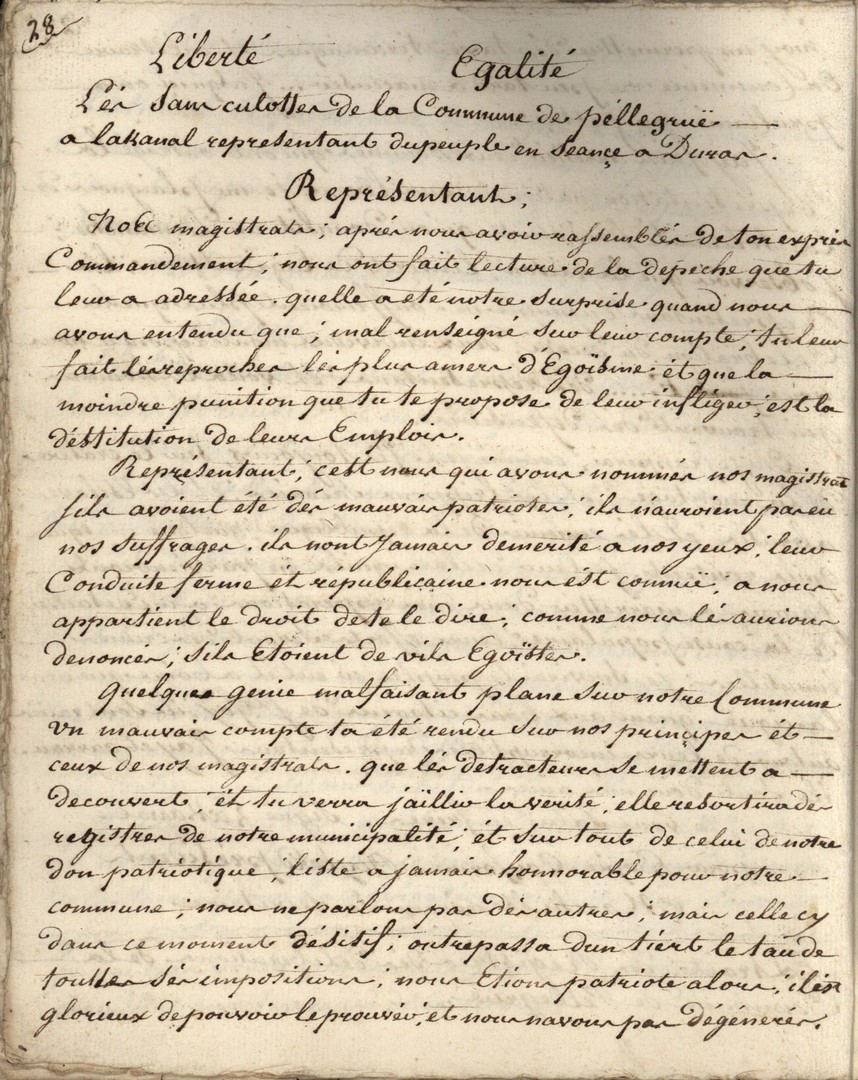 28
Liberté Egalité
Lés Sans culottes de la Commune de péllegruë
a lakanal representant du peuple en seançe a Duras.
Représentant;
Nos magistrats; aprés nous avoir rassemblés de ton exprés
Commandement; nous ont fait lecture de la depeche que tu
leur a adressée. quelle a eté notre surprise quand nous
avons entendu que; mal renseigné sur leur compte; tu leur
fait lés reproches lés plus amers d'Egoïsme ét que la
moindre punition que tu te propose de leur infliger; est la
déstitution de leurs Emplois.
Représentant; c'est nous qui avons nommés nos magistrats
sils avoient été dés mauvais patriotes; ils n'auroient pas eu
nos suffrages. ils nont Jamais demerité a nos yeux; leur
Conduite ferme ét républicaine nous ést connuë; a nous
appartient le droit de te le dire; comme nous lés aurions
denoncés; sils Etoient de vils Egoïstes.
quelques genie malfaisant plane sur notre Commune
un mauvais compte ta été rendu sur nos prinçipes ét
ceux de nos magistrats. que lés detracteurs se mettent a
decouvert; ét tu verra jaïllir la verité; elle resortira dés
registres de notre municipalité; ét sur tout de celui de notre
don patriotique; liste a jamais honnorable pour notre
commune; nous ne parlons pas dés autres; mais celle cy
dans ce moment désisif; outrepassa d'un tiért le tau de
touttes sés impositions; nous Etions patriote alors; il ést
glorieux de pouvoir le prouvér; et nous navons pas dégénérés.